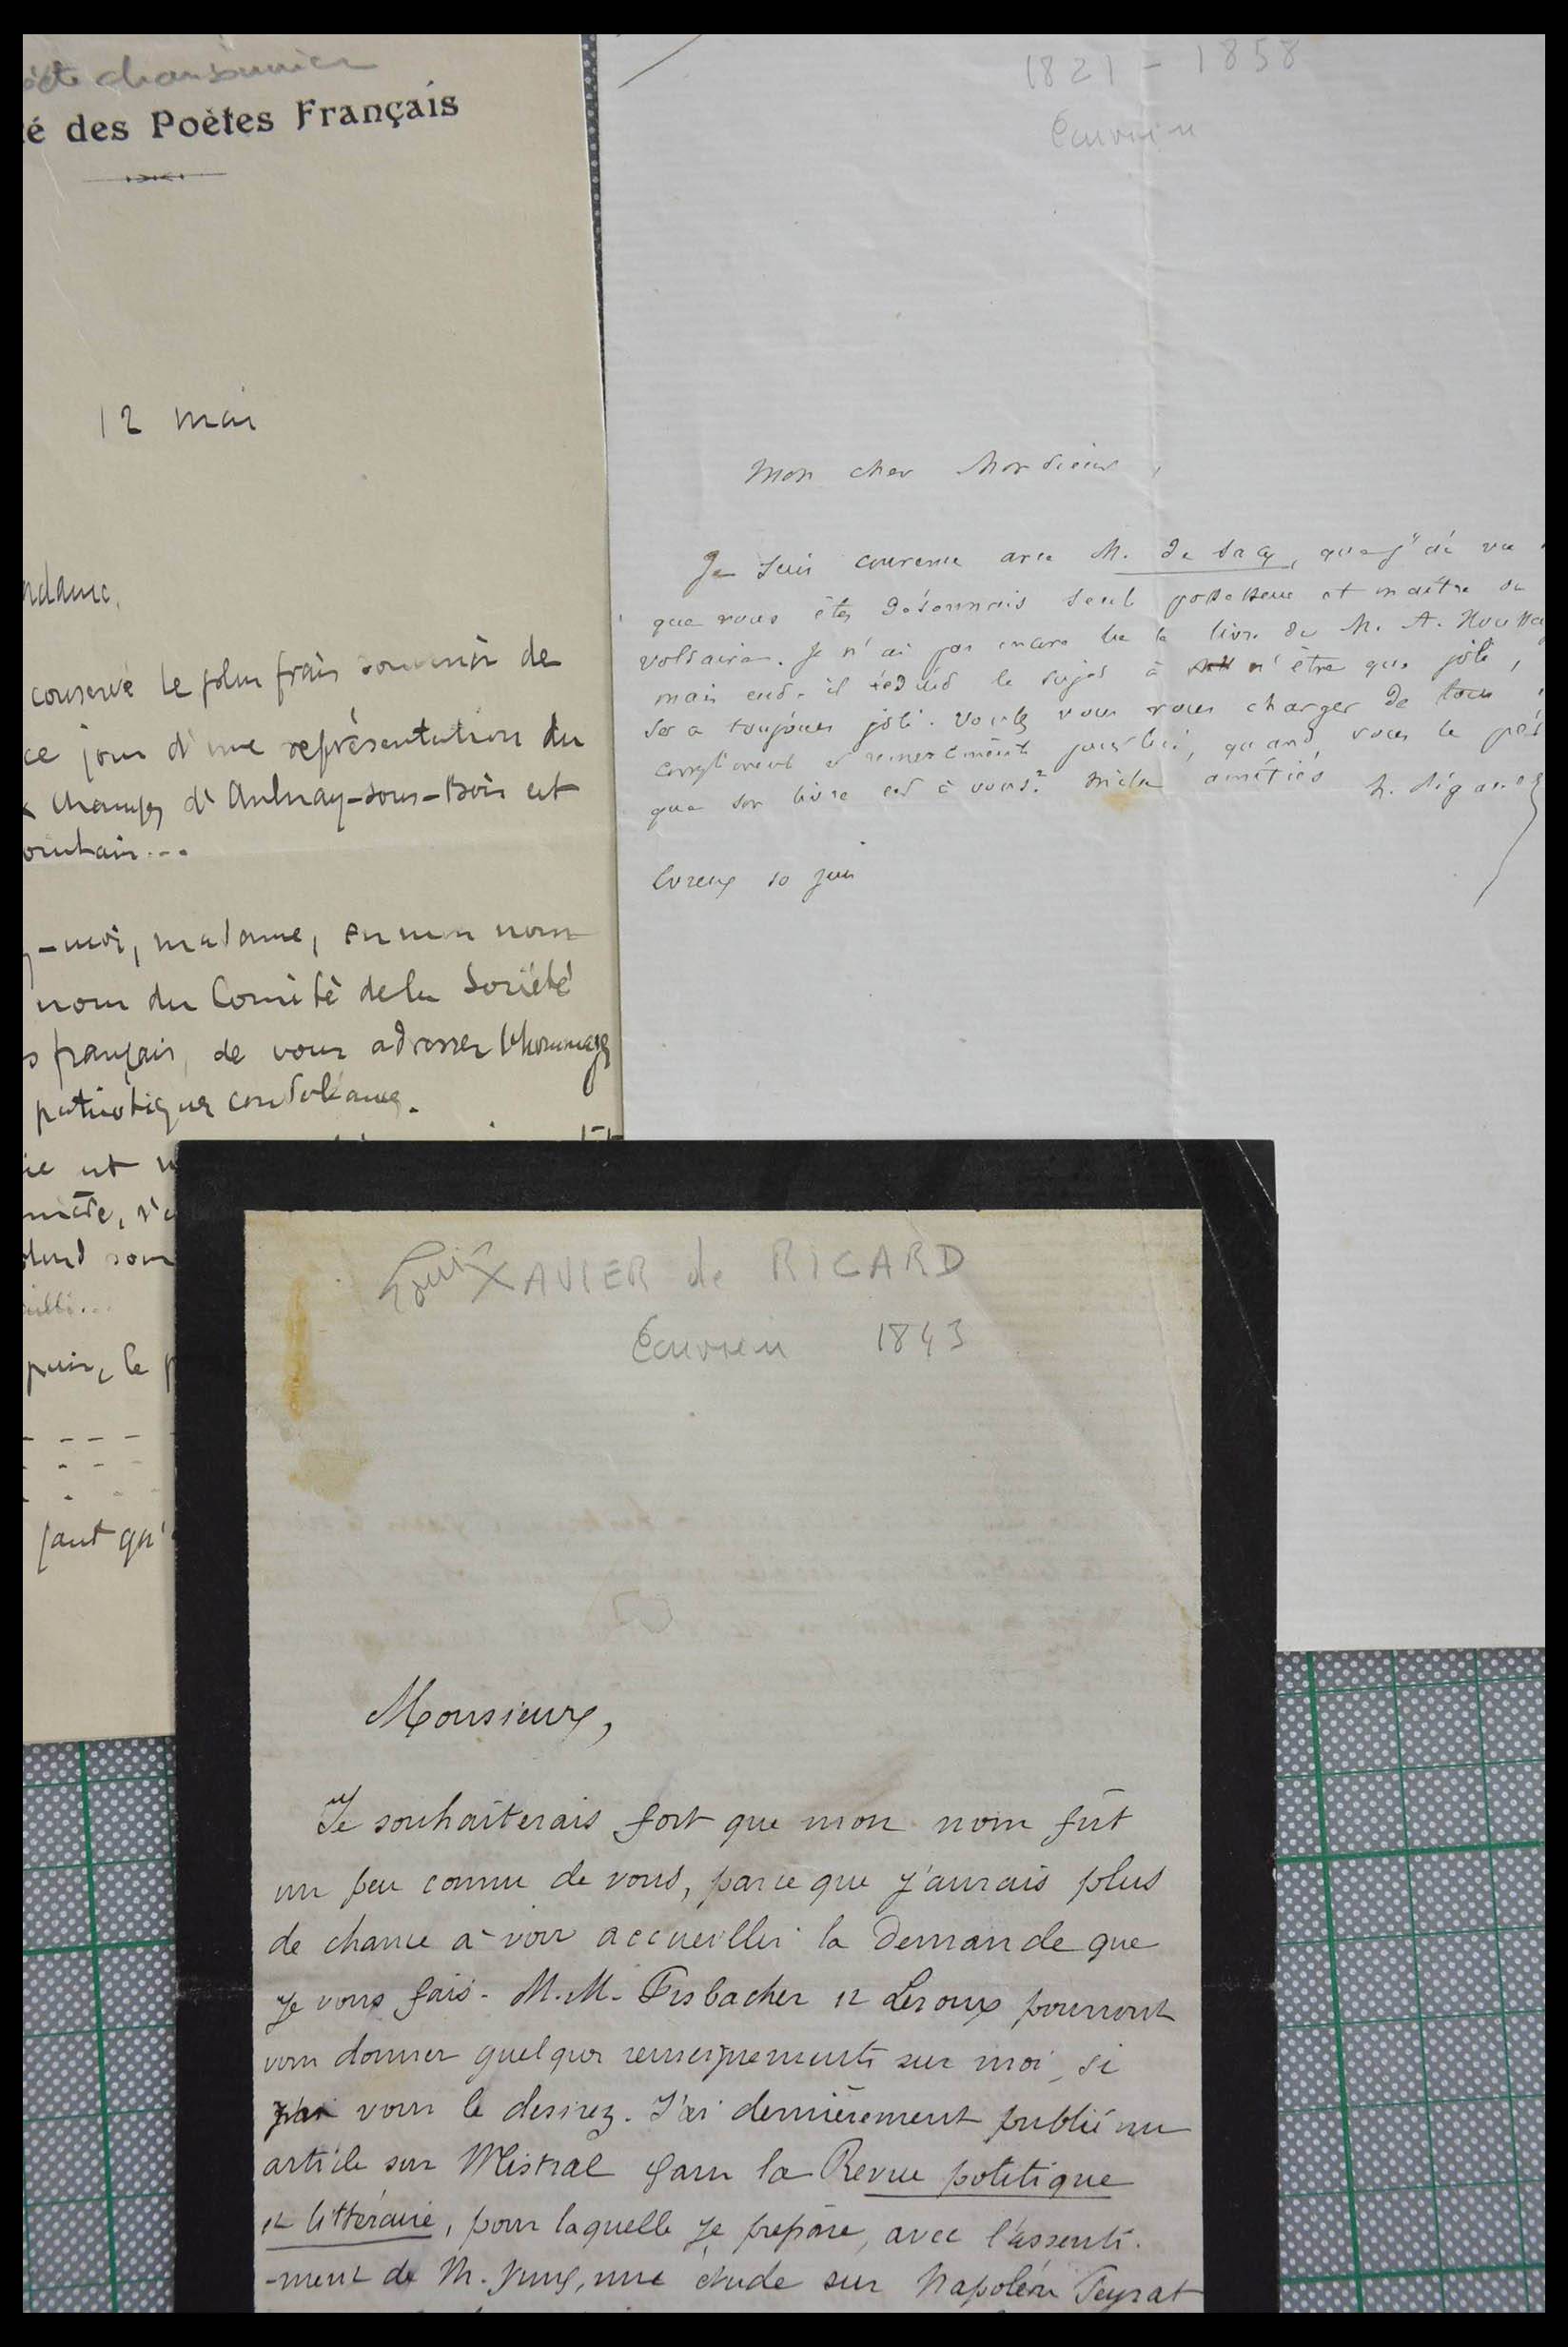 chansonnier
é des Poètes Français
12 mai
adame,
conservé le plus frais souvenir de
ce jour d'une représentation du
Champs d'Aulnay-sous-Bois est
-moi, madame, en mon nom
nom du Comité de la Société
s français, de vous adresser l'hommage
patriotiques condoléances.
ie est
puis, le p
faut qu'
1821 - 1858
Écrivain
Mon cher Monsieur,
Je suis convenu avec M. de Sacy, que j'ai vu
que vous êtes désormais seul possesseur et maître du
Voltaire. Je n'ai pas encore lu le livre de M. A. Houssa
mais eut-il réduit le sujet à n'être que joli,
sera toujours joli. Voulez vous vous charger de tous
compliment et remerciment pour lui, quand vous le
que son livre est à vous? Mille amitiés H. Rigault
Evreux 10 juin
Louis XAVIER de RICARD
Écrivain 1843
Monsieur,
Je souhaiterais fort que mon nom fût
un peu connu de vous, parce que j'aurais plus
de chance à voir accueillir la demande que
je vous fais. M.M. Fisbacher et Leroux pourront
vous donner quelques renseignements sur moi, si
vous le desirez. J'ai dernièrement publié un
article sur Mistral dans la Revue politique
et littéraire, pour laquelle je prépare, avec l'assenti-
-ment de M. Jung, une étude sur Napoléon Peyrat